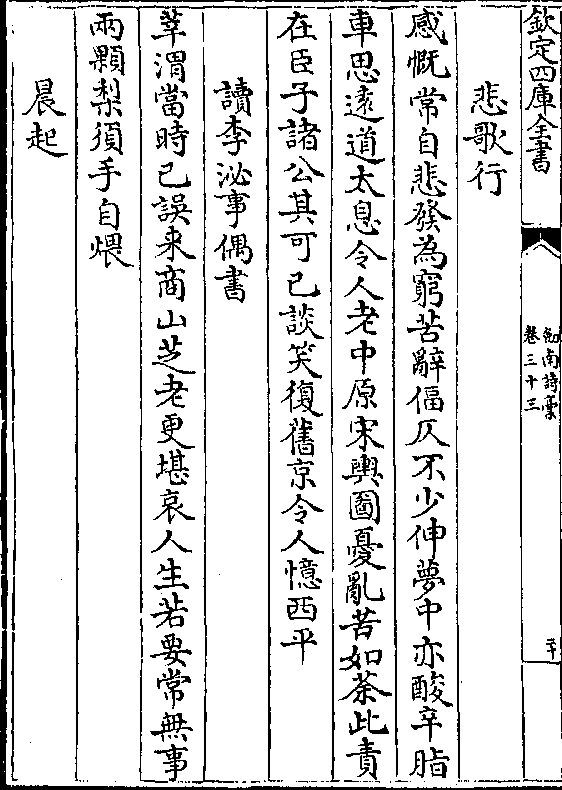 欽定四庫全書
劍南詩稾
卷三十三
悲歌行
感慨常自悲發為窮苦辭偪仄不少伸夢中亦酸辛脂
車思逺道太息令人老中原宋輿圖憂亂苦如荼此責
在臣子諸公其可已談笑復舊京令人憶西平
讀李泌事偶書
莘渭當時已誤来商山芝老更堪哀人生若要常無事
兩顆梨須手自煨
晨起